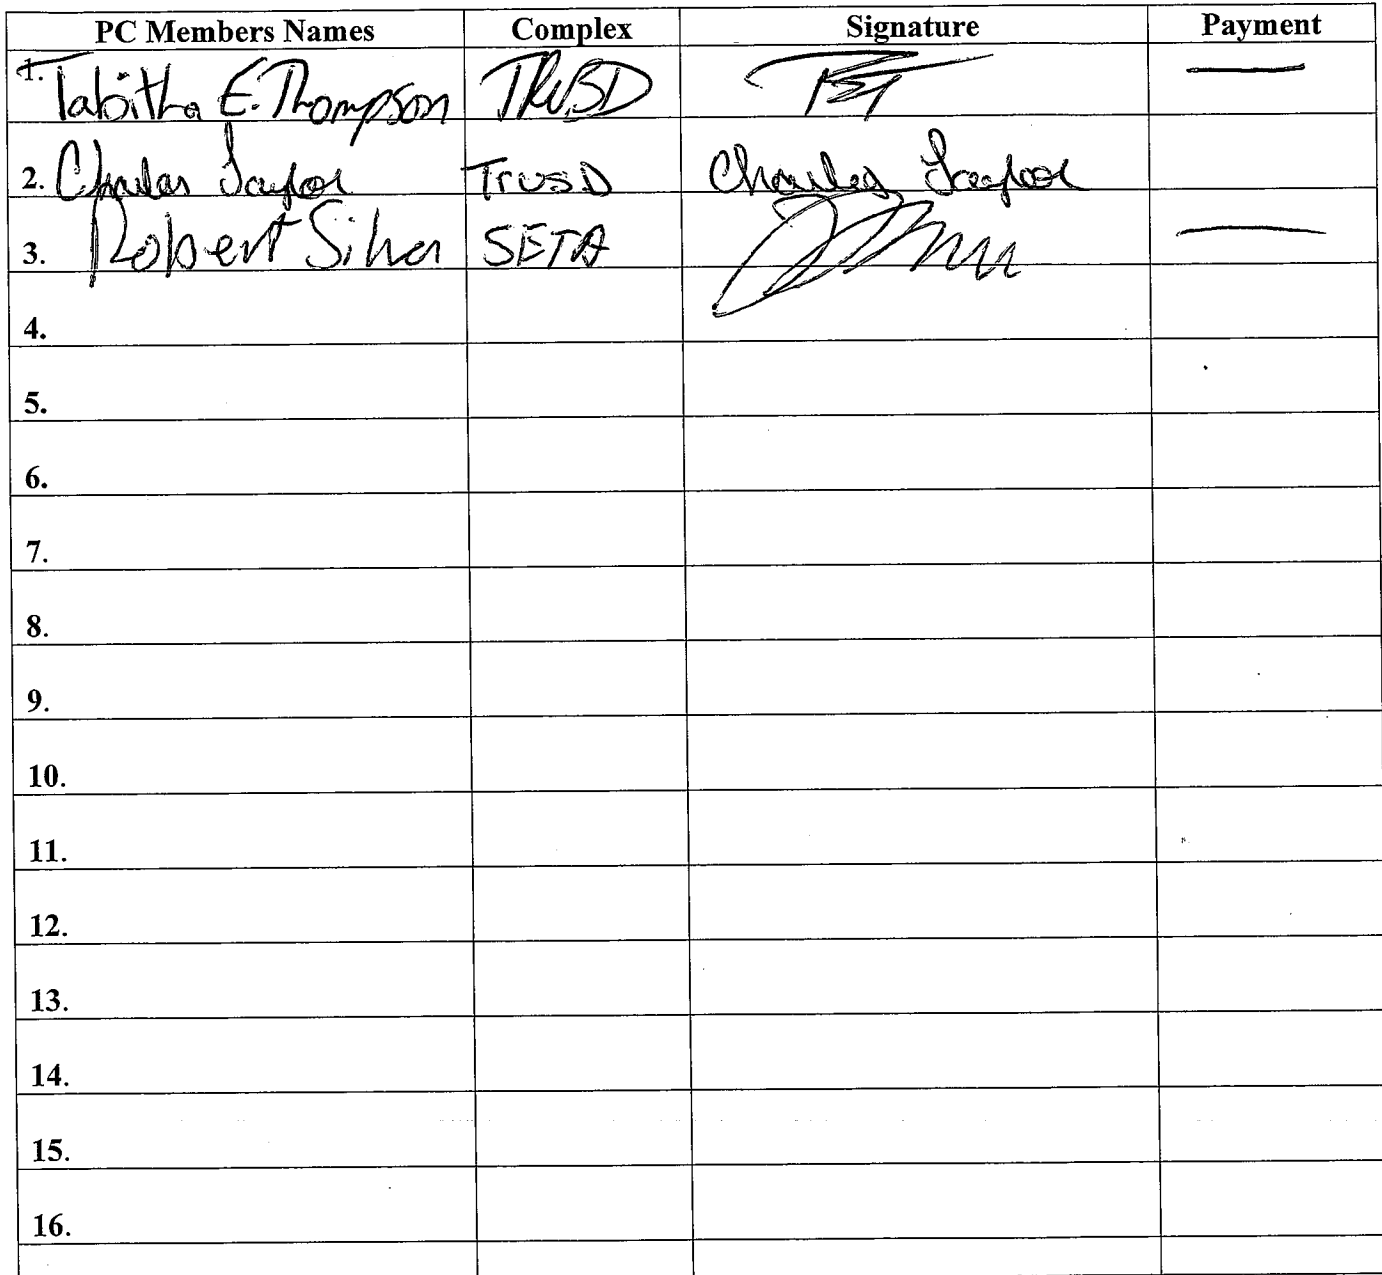 PC Members Names Complex Signature Payment
1. Tabitha E. Thompson TRUSD TET —
2. Charles Taylor TrusD Charles Taylor
3. Robert Silva SETA —
4.
5.
6.
7.
8.
9.
10.
11.
12.
13.
14.
15.
16.